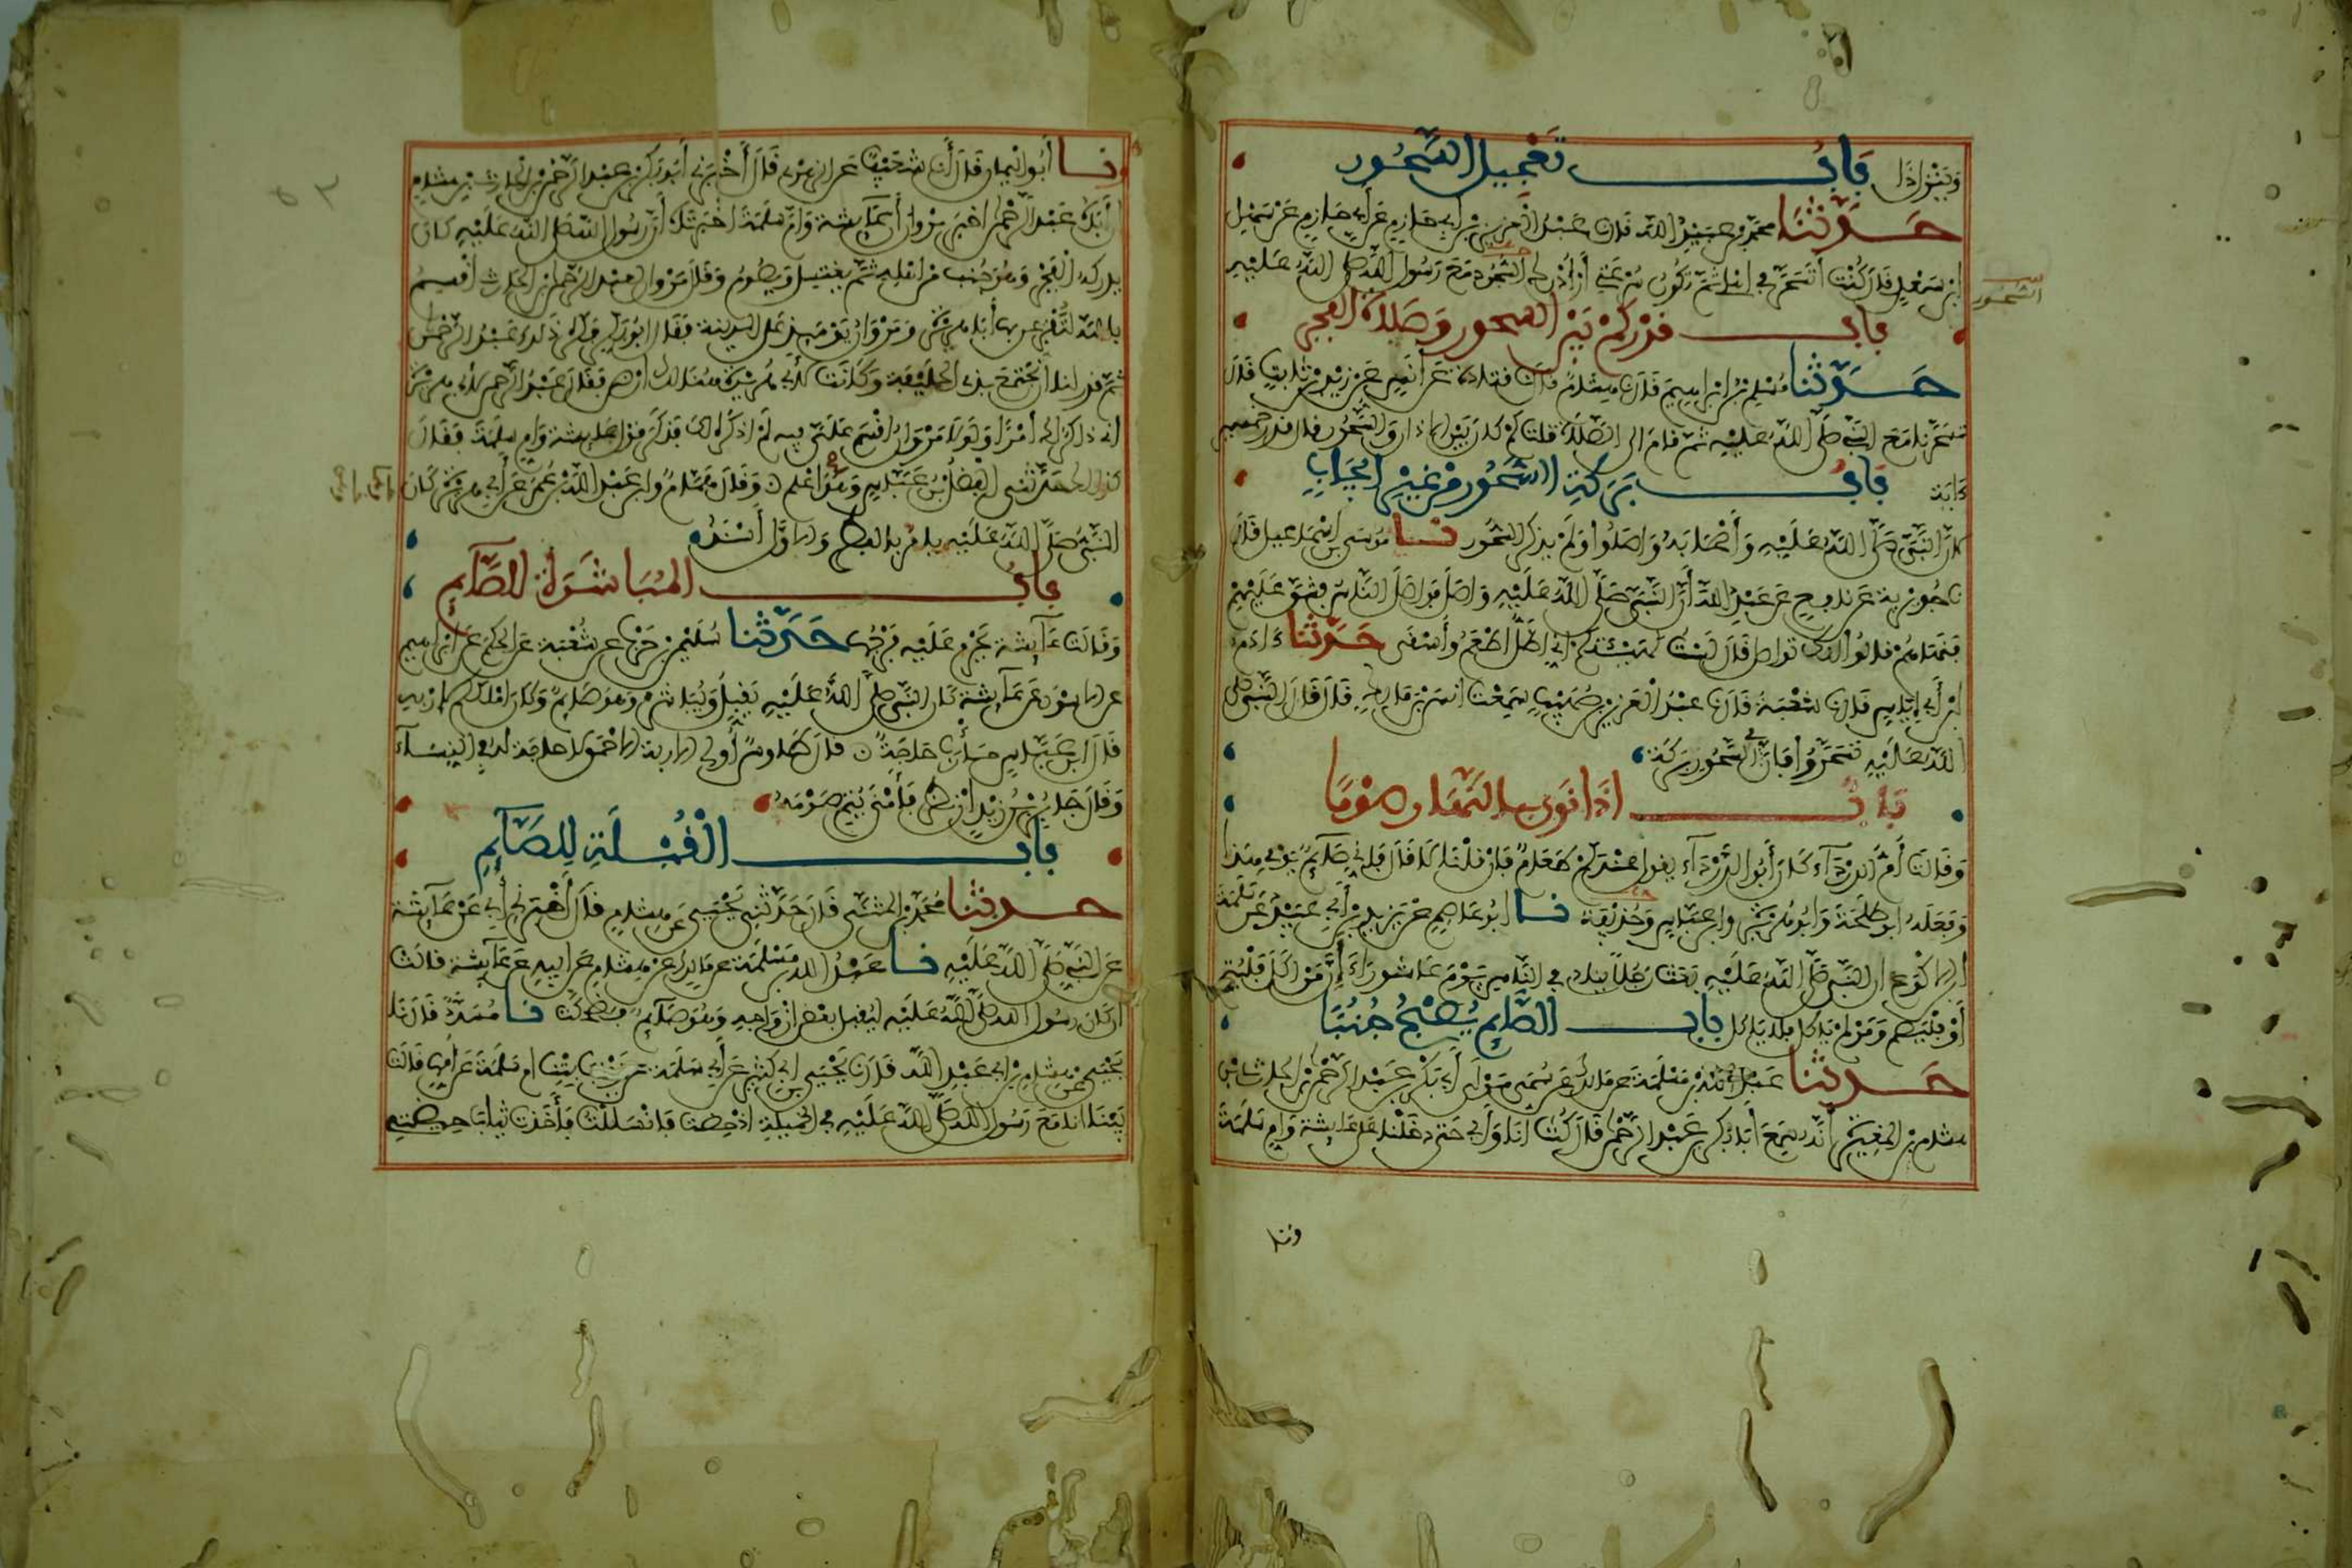 وبين اذا
باب تعجيل السحور
حدثنا محمد بن عبيد الله قال نا عبد العزيز بن أبي حازم عن أبي حازم عن سهل
ابن سعد قال كنت أتسحر في أهلي ثم تكون سرعتي أن أدرك السحور مع رسول الله صلى الله عليه
السحور
باب قدر كم بين السحور وصلاة الفجر
حدثنا مسلم بن ابراهيم قال نا هشام قال نا قتادة عن أنس عن زيد بن ثابت قال
تسحرنا مع النبي صلى الله عليه ثم قام الى الصلاة قلت كم كان بين الاذان والسحور قال قدر خمسين
ءاية
باب بركة السحور من غير إيجاب
لأن النبي صلى الله عليه وأصحابه واصلوا ولم يذكر السحور نا موسى بن اسماعيل قال
نا جويرية عن نافع عن عبد الله أن النبي صلى الله عليه واصل فواصل الناس فشق عليهم
فنهاهم قالوا انك تواصل قال لست كهيئتكم إني أظل أطعم وأسقى حدثنا ءادم
ابن أبي إياس قال نا شعبة قال نا عبد العزيز بن صهيب سمعت أنس بن مالك قال قال النبي صلى
الله عليه تسحروا فإن في السحور بركة
باب اذا نوى بالنهار صوما
وقالت أم الدرداء كان أبو الدرداء يقول عندكم طعام فإن قلنا لا قال فإني صائم يومي هذا
وفعله ابو طلحة وابو هريرة وابن عباس وحذيفة نا ابو عاصم عن يزيد بن أبي عبيد عن سلمة
ابن الاكوع ان النبي صلى الله عليه بعث رجلا ينادي في الناس يوم عاشوراء أن من اكل فليتم
أو فليصم ومن لم ياكل فلا ياكل باب الصائم يصبح جنبا
حدثنا عبد الله بن مسلمة عن مالك عن سمي مولى أبي بكر بن عبد الرحمن بن الحارث بن
هشام بن المغيرة أنه سمع أبا بكر بن عبد الرحمن قال كنت انا وأبي حتى دخلنا على عائشة وام سلمة
ونا
ونا أبو اليمان قال أنا شعيب عن الزهري قال أخبرني أبو بكر بن عبد الرحمن بن الحارث بن هشام
أن أباه عبد الرحمن اخبر مروان أن عائشة وام سلمة اخبرتاه أن رسول الله صلى الله عليه كان
يدركه الفجر وهو جنب من اهله ثم يغتسل ويصوم وقال مروان لعبد الرحمن بن الحارث أقسم
بالله لتقرعن بها أبا هريرة ومروان يومئذ على المدينة فقال ابو بكر فكره ذلك عبد الرحمن
ثم قدر لنا أن نجتمع بذي الحليفة وكانت لأبي هريرة هنالك ارض فقال عبد الرحمن لأبي هريرة
اني ذاكر لك أمرا ولولا مروان أقسم علي فيه لم اذكره لك فذكر قول عائشة وام سلمة فقال
كذلك حدثني الفضل بن عباس وهو أعلم وقال همام وابن عبد الله بن عمر عن أبي هريرة كان
النبي صلى الله عليه يامر بالفطر والاول أسند
باب المباشرة للصائم
وقالت عائشة يحرم عليه فرجها حدثنا سليمن بن حرب عن شعبة عن الحكم عن ابراهيم
عن الاسود عن عائشة كان النبي صلى الله عليه يقبل ويباشر وهو صائم وكان املككم لاربه
قال ابن عباس مأرب حاجة قال طاوس أولي الاربة الاحمق لا حاجة له في النساء
وقال جابر بن زيد إن نظر فأمنى يتم صومه
باب القبلة للصائم
حدثنا محمد بن المثنى قال حدثني يحيى عن هشام قال أخبرني أبي عن عائشة
عن النبي صلى الله عليه نا عبد الله بن مسلمة عن مالك عن هشام عن ابيه عن عائشة قالت
ان كان رسول الله صلى الله عليه ليقبل بعض ازواجه وهو صائم ثم ضحكت نا مسدد قال نا
يحيى عن هشام بن أبي عبد الله قال نا يحيى بن أبي كثير عن أبي سلمة عن زينب بنت ام سلمة عن أمها قالت
بينما انا مع رسول الله صلى الله عليه في الخميلة اذ حضت فانسللت فأخذت ثياب حيضتي